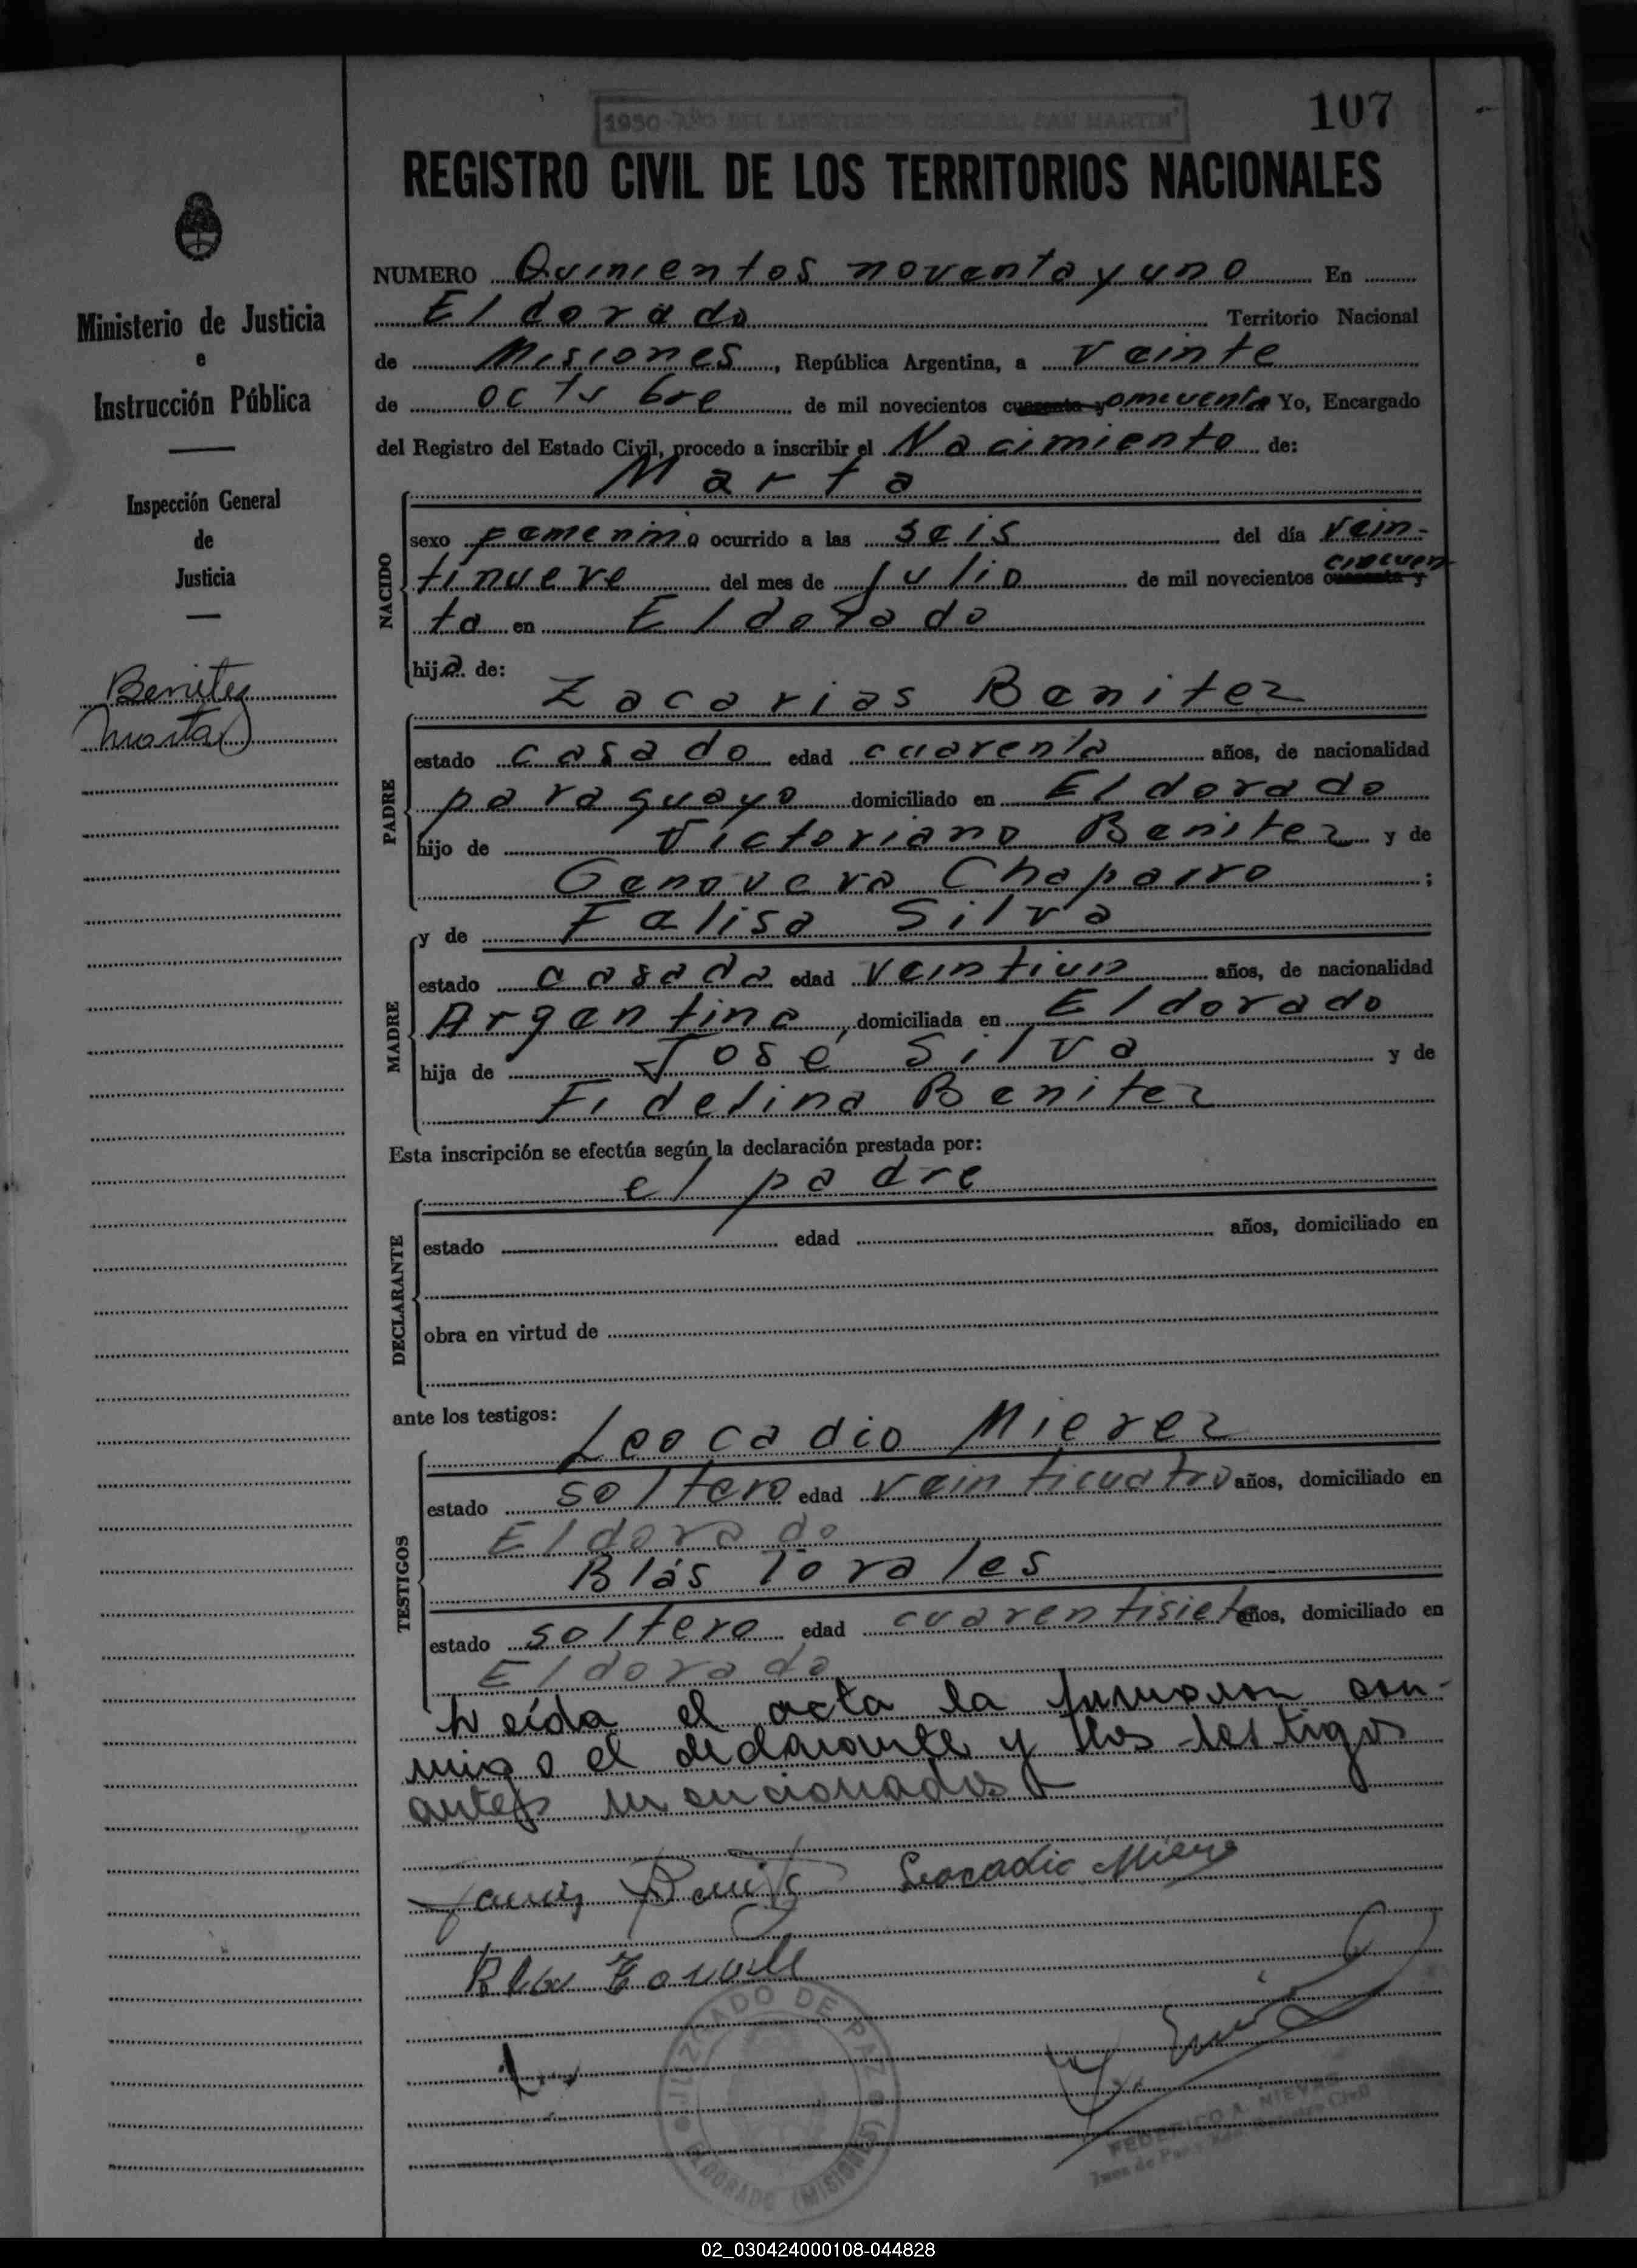 1950 AÑO DEL LIBERTADOR GENERAL SAN MARTIN
107
REGISTRO CIVIL DE LOS TERRITORIOS NACIONALES
Ministerio de Justicia
e
Instrucción Pública
Inspección General
de
Justicia
Benitez
Marta
NUMERO Quinientos noventa y uno En
Eldorado Territorio Nacional
de Misiones, República Argentina, a Veinte
de octubre de mil novecientos Yo, Encargado
del Registro del Estado Civil, procedo a inscribir el Nacimiento de:
Marta
NACIDO
sexo femenino ocurrido a las seis del día vein-
tinueve del mes de Julio de mil novecientos cincuen
ta en Eldorado
hija de:
Zacarias Benitez
PADRE
estado casado edad cuarenta años, de nacionalidad
paraguayo domiciliado en Eldorado
hijo de Victoriano Benitez y de
Genoveva Chaparro ;
MADRE
y de Felisa Silva
estado casada edad veintiun años, de nacionalidad
Argentina, domiciliada en Eldorado
hija de José Silva y de
Fidelina Benitez
Esta inscripción se efectúa según la declaración prestada por:
el padre
DECLARANTE
estado edad años, domiciliado en
obra en virtud de
ante los testigos:
Leocadio Mierez
TESTIGOS
estado soltero edad veinticuatro años, domiciliado en
Eldorado
Blás Torales
estado soltero edad cuarentisiete años, domiciliado en
Eldorado
Leída el acta la firmaron con-
migo el declarante y los testigos
antes mencionados
Benitez Leocadio Mierez
JUZGADO DE PAZ
ELDORADO (MISIONES)
FEDERICO A. NIEVAS
Juez de Paz y Registro Civil
02_030424000108-044828